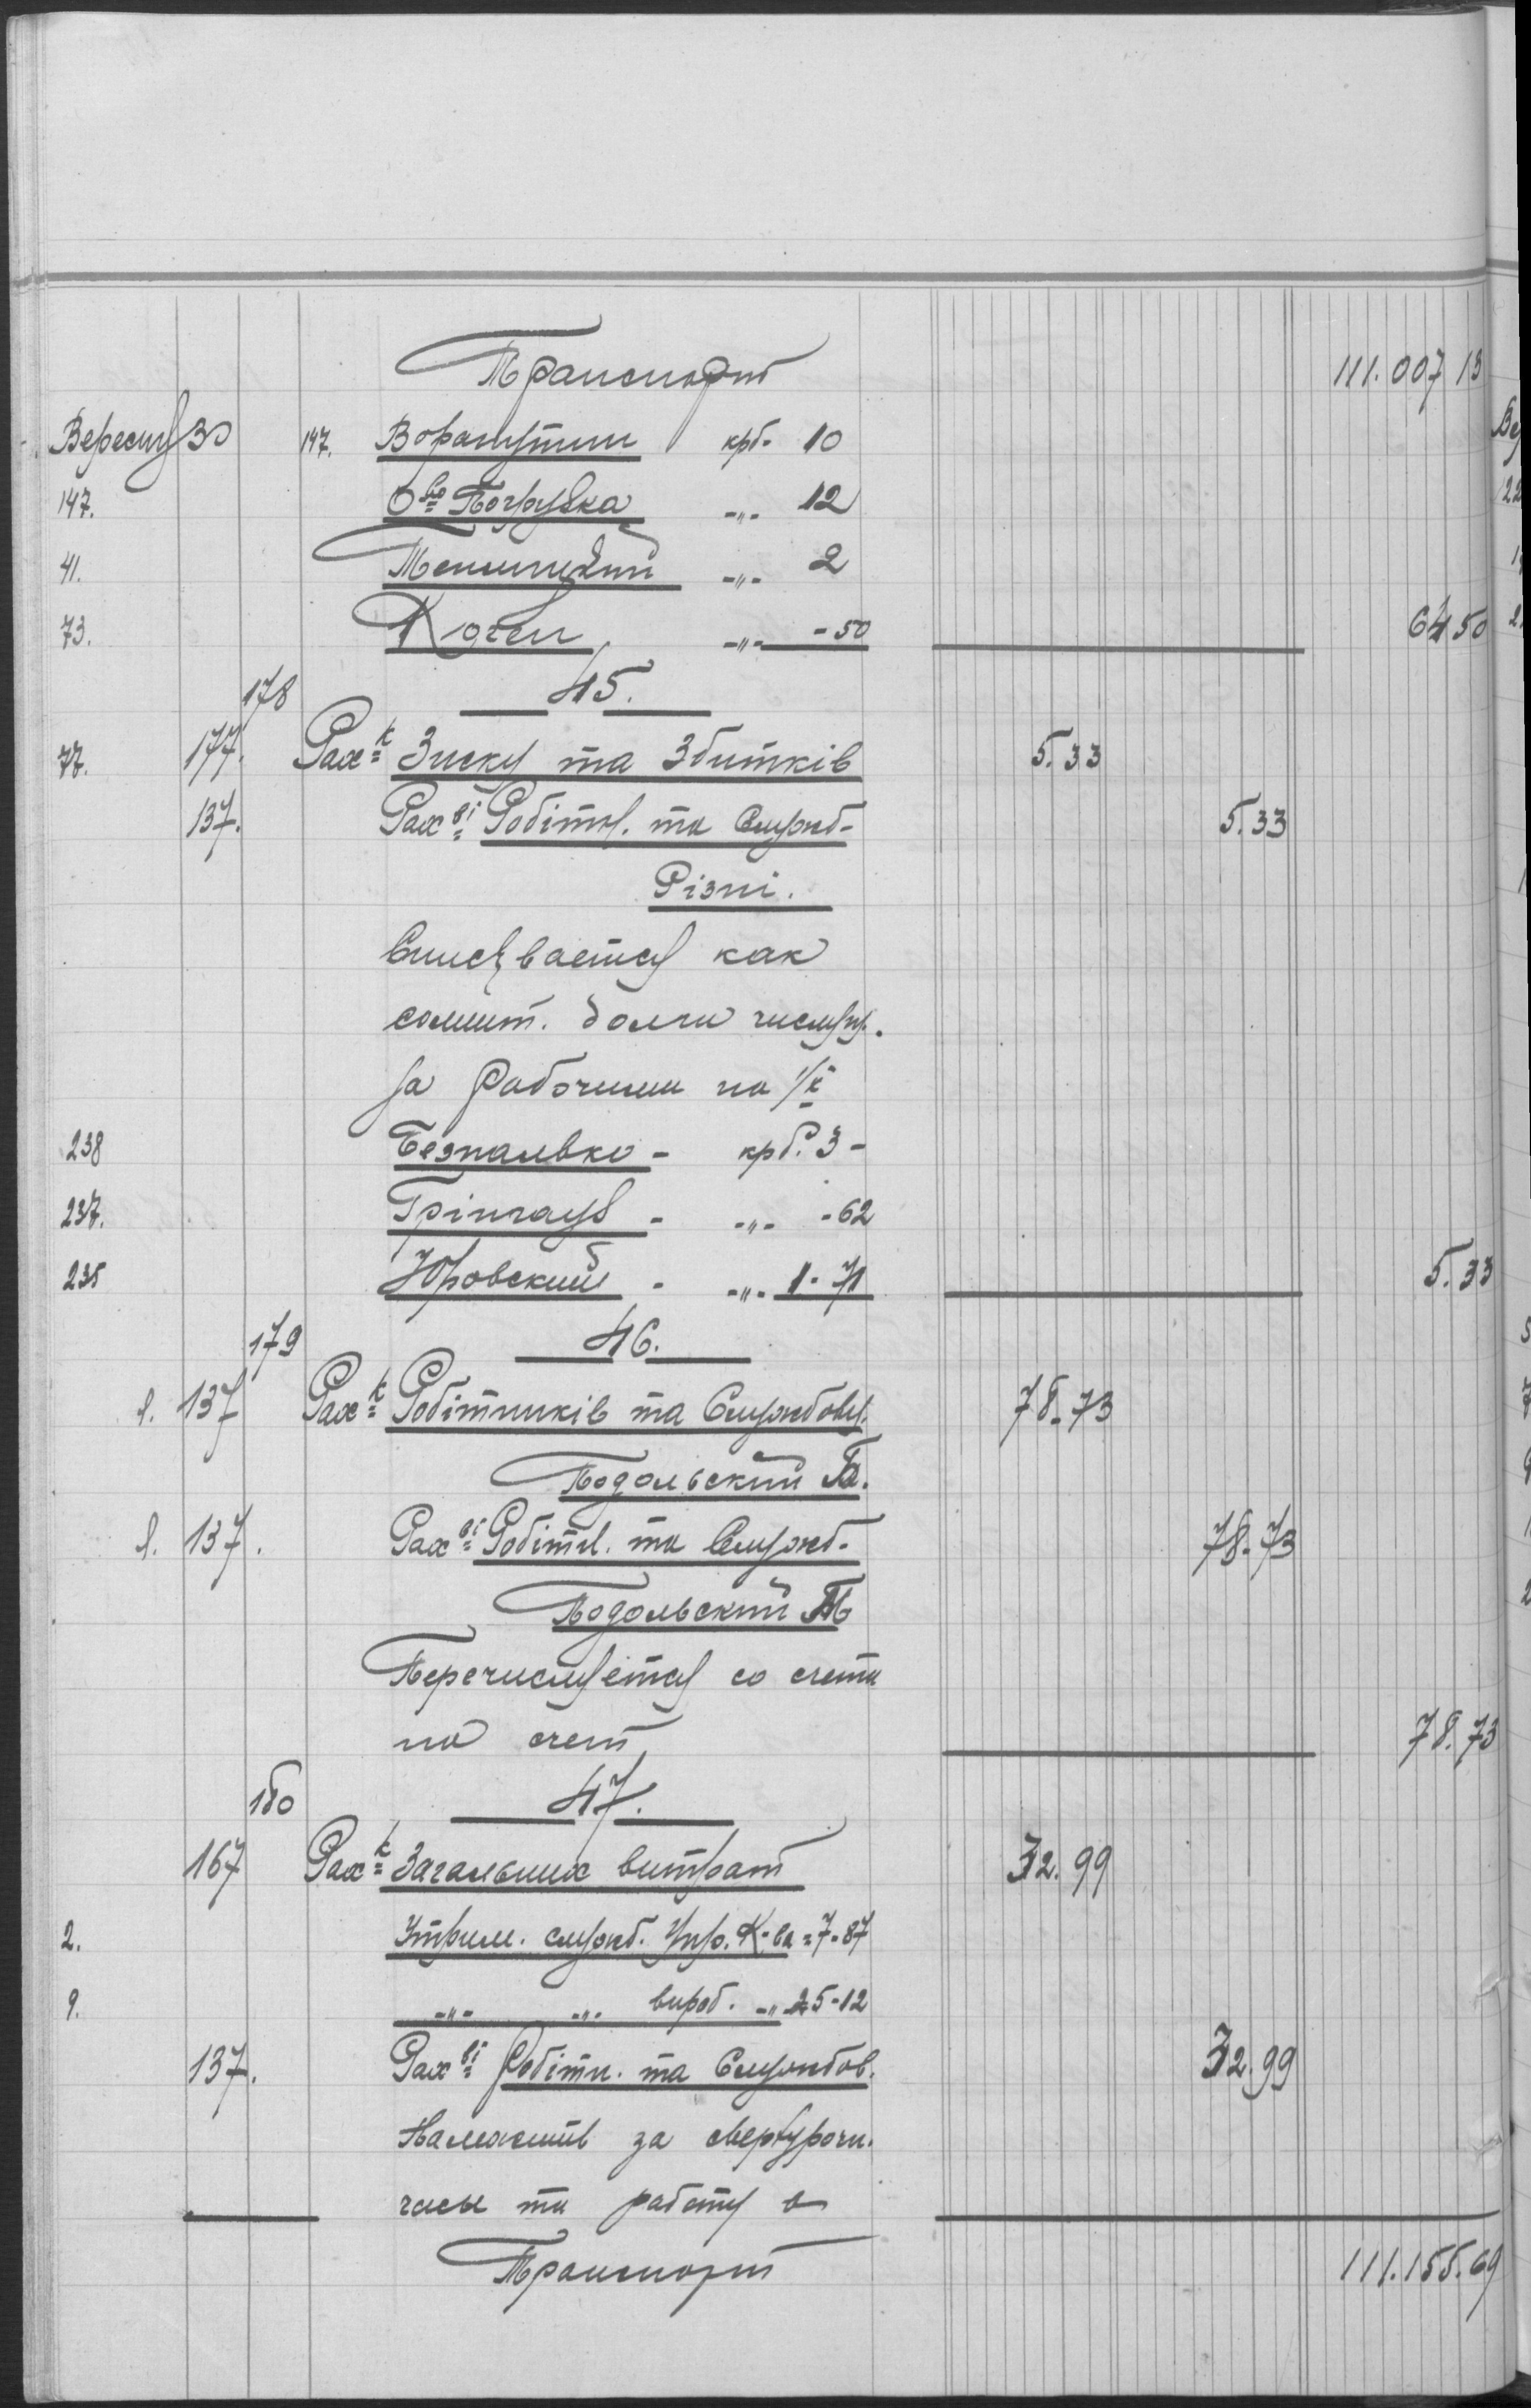 Транспорт 111.007 13
Вересня 30 147. Ворашутин крб. 10
147. О-во Погрузка -"- 12
41. -"- 2
73. Коген -"- -50 64 50
178 45.
77. 177. Рах-к Зиску та Збитків 5.33
137. Рах-ві Робітн. та Служб- 5.33
Різні.
Списывается как
сомнит. долги числящ.
за Рабочими по л/к
238 Безпалько - крб. 3-
237. Грінгауз - -"- -62
235 Юровский - -"- 1-71 5.33
179 46.
л. 137 Рах-к Робітників та Службовц. 78-73
Подольский П.
л. 137. Рах-ві Робітн. та Служб- 78-73
Подольский М
Перечисляется со счета
на счет 78.73
180 47.
167 Рах-к Загальних витрат 32.99
2. Утрим. служб. Упр. К-ва = 7-87
9. -"- -"- вироб. -"- 25-12
137. Рах-ві Робітн. та Службов. 32.99
за сверхурочн.
часы та работу в
Транспорт 111.155.69